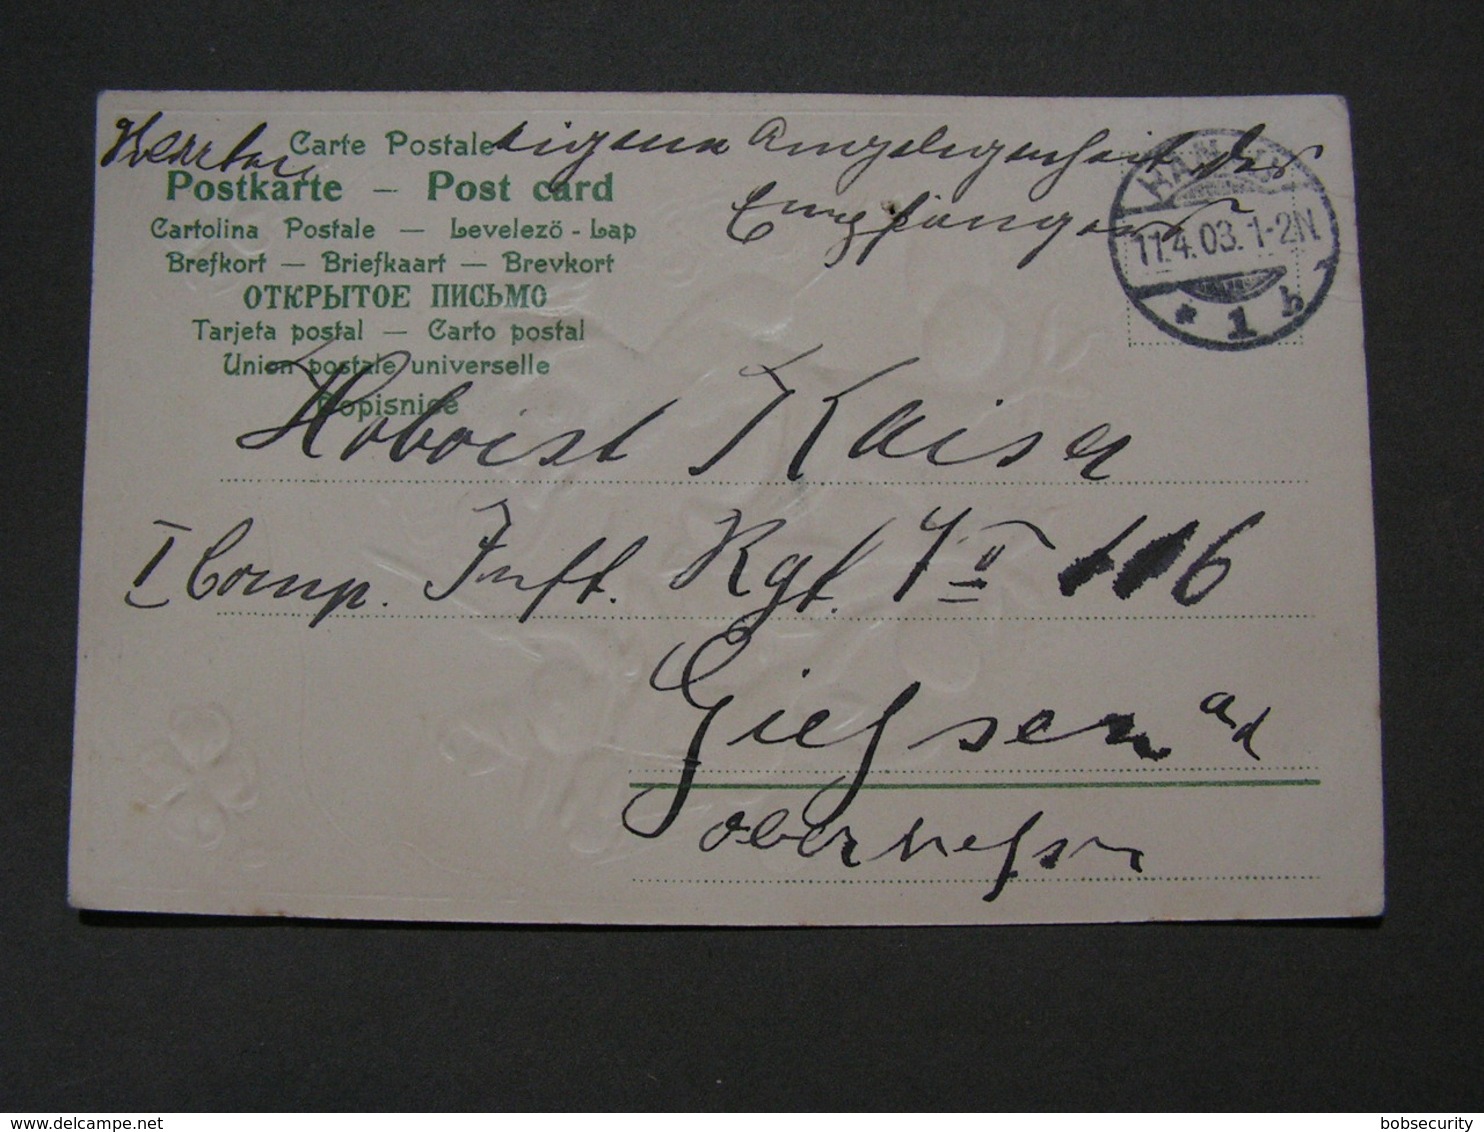 Carte Postale eigene Angelegenheit des
Empfängers
Postkarte – Post card
Cartolina Postale — Levelező-Lap
Brefkort — Briefkaart — Brevkort
ОТКРЫТОЕ ПИСЬМО
Tarjeta postal — Carto postal
Union postale universelle
Dopisnice
11.4.03.1-2N
* 1 h
Hoboist Kaiser
I Comp. Inft. Rgt. 116
Gießen a/d
Oberhessen
bobsecurity